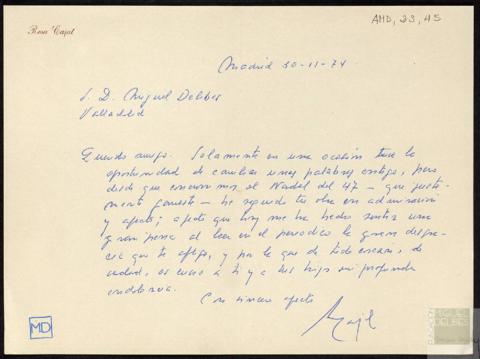 Rosa Cajal
AMD, 23, 45
Madrid 30-11-74
S. D. Miguel Delibes
Valladolid
Querido amigo. Solamente en una ocasión tuve la
oportunidad de cambiar unas palabras contigo, pero
desde que concurrimos al Nadal del 47 — que justa-
mente ganaste — he seguido tu obra en admiración
y afecto; afecto que hoy me ha hecho sentir una
gran pena al leer en el periodico la gran desgra-
cia que te aflige, y por la que de todo corazón, de
verdad, os envio a ti y a tus hijos mi profunda
condolencia.
Con sincero afecto
Cajal
MD